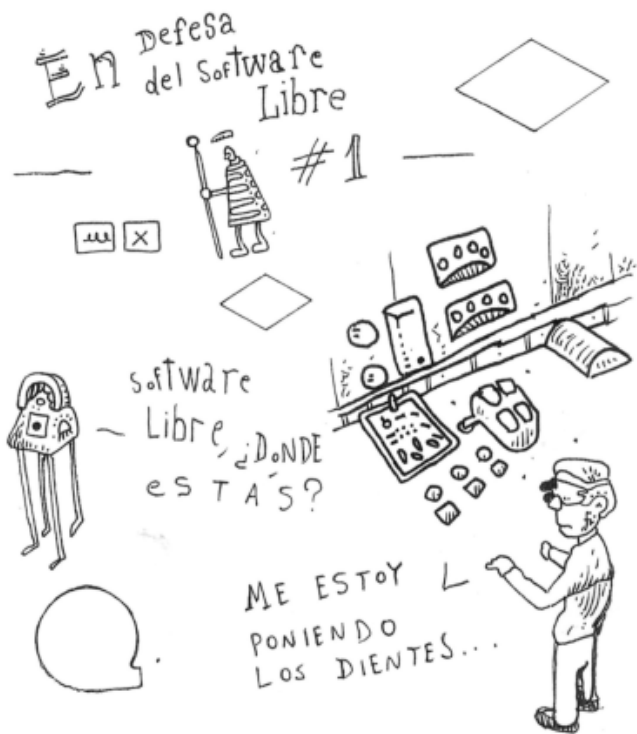 En Defesa
del Software
Libre
#1
x
Software
Libre, ¿DONDE
esTAS?
ME ESTOY
PONIENDO
LOS DIENTES...